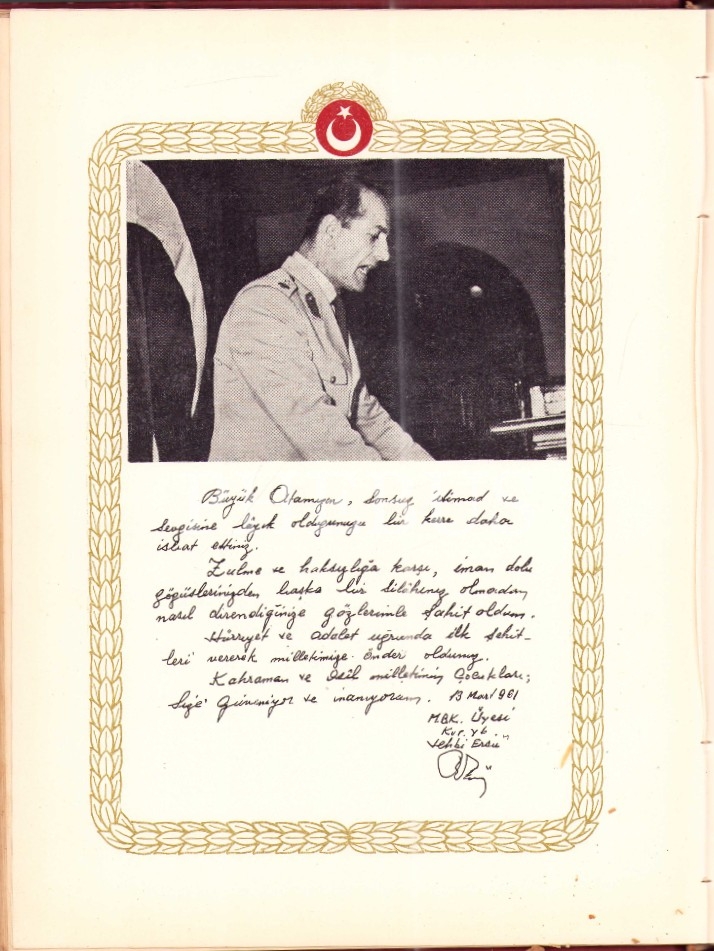 Büyük Atamızın, sonsuz itimad ve
sevgisine lâyık olduğunuzu bir kerre daha
isbat ettiniz.
Zulme ve haksızlığa karşı, iman dolu
göğüslerinizden başka bir silâhınız olmadan
nasıl direndiğinize gözlerimle şahit oldum.
Hürriyet ve adalet uğrunda ilk şehit-
leri vererek milletimize önder oldunuz.
Kahraman ve asil milletimin çocukları;
Size güveniyor ve inanıyorum. 13 Mart 961
M.B.K. Üyesi
Kur. Yb.
Vehbi Ersü